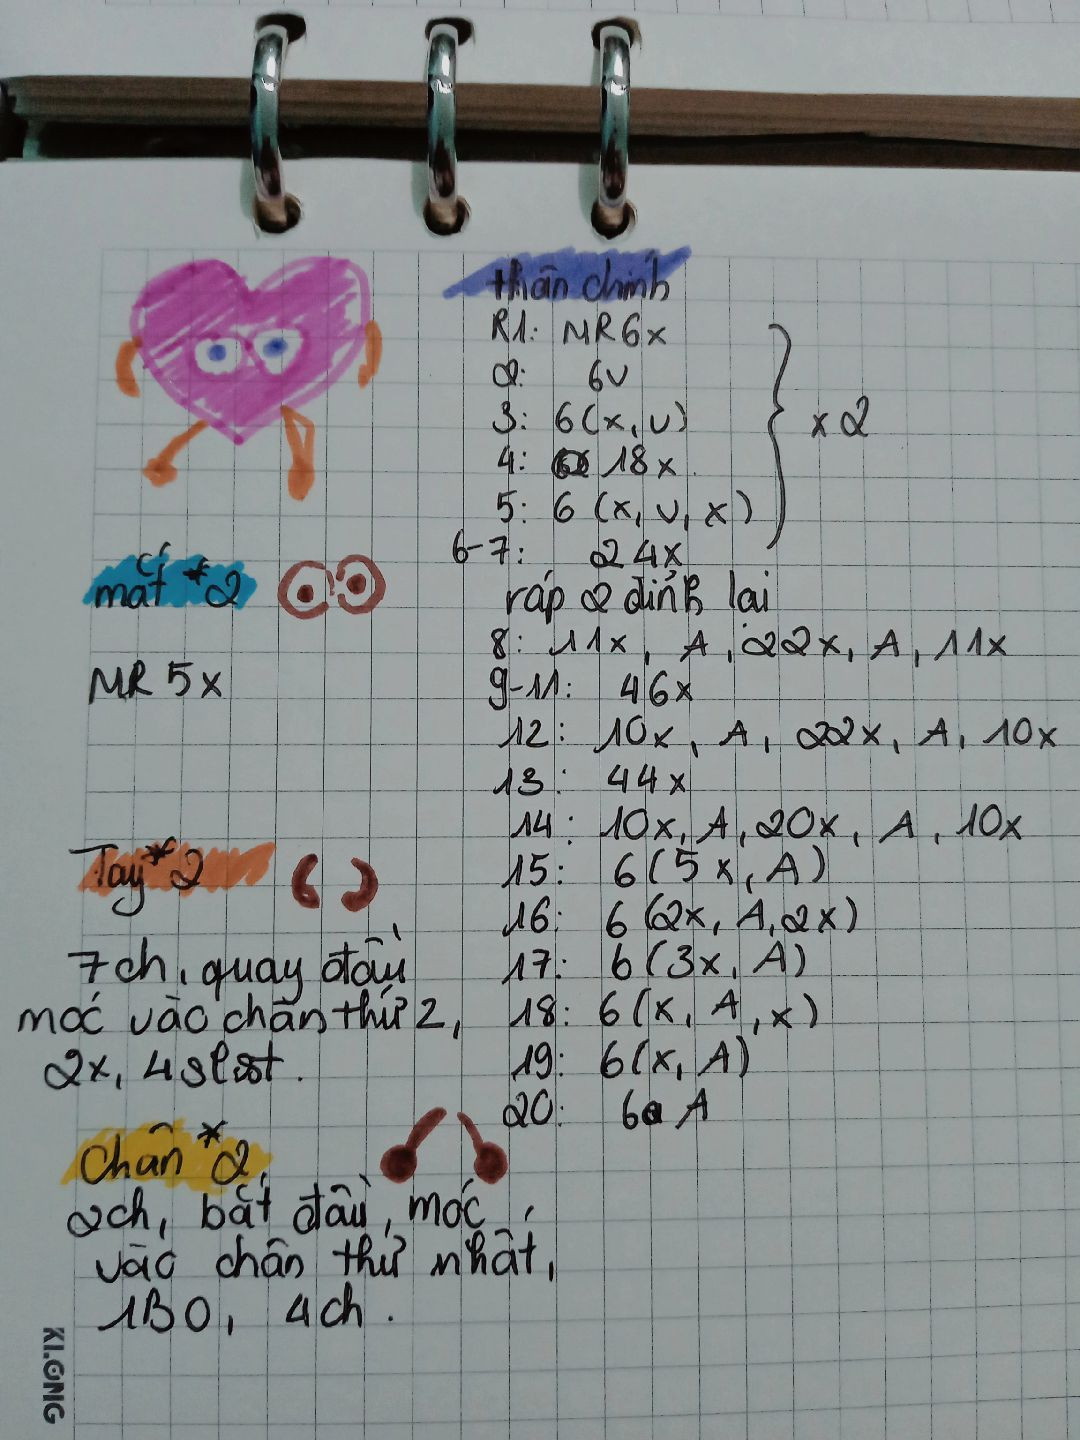 thân chính
R1: MR 6x
2: 6v
3: 6(x, v)
4: 18x
5: 6 (x, v, x)
x2
6-7: 24x
ráp 2 đỉnh lại
8: 11x, A, 22x, A, 11x
9-11: 46x
12: 10x, A, 22x, A, 10x
13: 44x
14: 10x, A, 20x, A, 10x
15: 6(5x, A)
16: 6(2x, A, 2x)
17: 6(3x, A)
18: 6(x, A, x)
19: 6(x, A)
20: 6 A
mắt *2
MR 5x
Tay *2
7ch, quay đầu
móc vào chân thứ 2,
2x, 4 slst.
Chân *2
2ch, bắt đầu, móc
vào chân thứ nhất,
1B0, 4ch.
KLONG